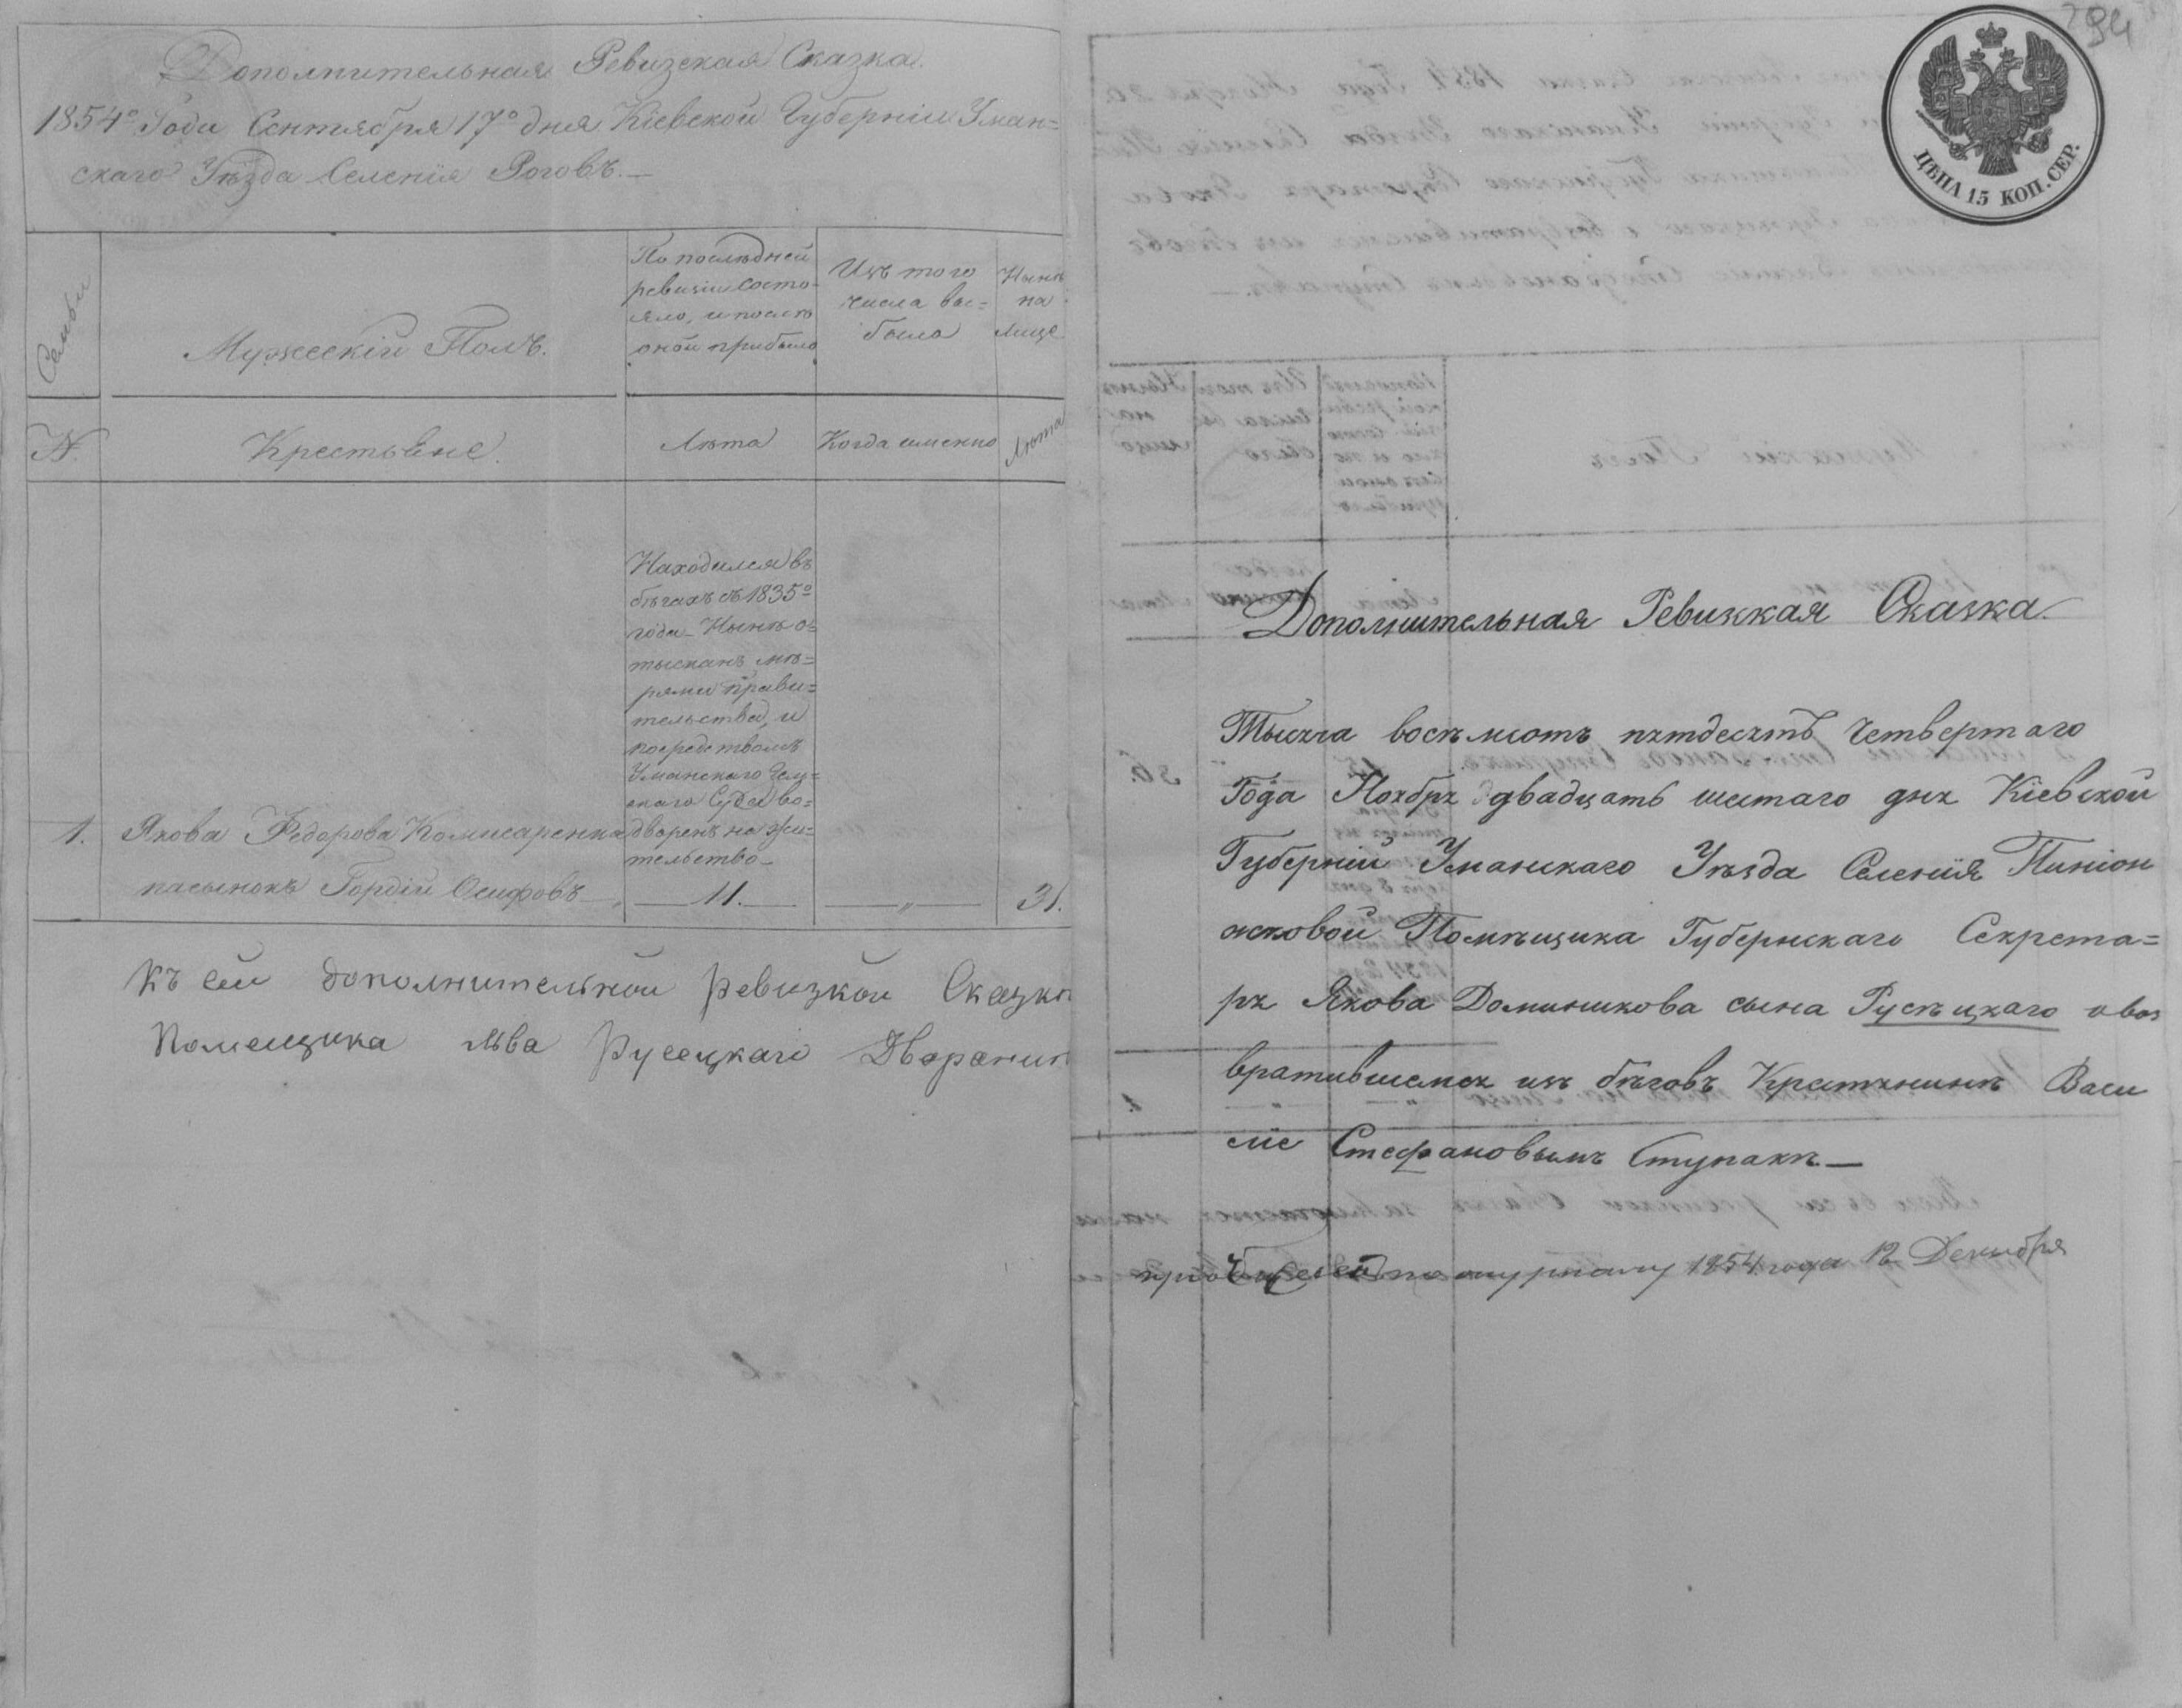 Дополнительная Ревизская Сказка.
1854º Года Сентября 17º дня Кіевской Губерніи Уман=
скаго Уѣзда Селенія Роговъ.—
Семьи
Мужескій Полъ.
По послѣдней
ревизіи состо-
яло, и послѣ
оной прибыло
Изъ того
числа вы=
было
Нынѣ
на
лице
№
Крестьяне.
Лѣта
Когда именно
Лѣта
Находился въ
бѣгахъ съ 1835º
года— Нынѣ о=
тысканъ мѣ=
рами Прави=
тельства, и
посредствомъ
Уманскаго Зем=
скаго Суда во=
дворенъ на жи=
тельство—
1. Якова Федорова Комисаренка
пасынокъ Гордій Осифовъ — 11. — „ — 31.
Къ сей дополнительной ревизкой Сказки
Помещика Льва Русецкаго Дворянин
94
ЦѢНА 15 КОП. СЕР.
Дополнительная Ревизкая Сказка.
Тысяча восѣмсотъ пятдесятъ Четвертаго
Года Ноября двадцать шестаго дня Кіевской
Губерніи Уманскаго Уѣзда Селенія Пиніон
жковой Помѣщика Губернскаго Секрета=
ря Якова Доминикова сына Русѣцкаго о воз
вратившемся изъ бѣговъ Крестянинѣ Васи
ліе Стефановымъ Ступакѣ—
по журналу 1854 года 12 Декабря